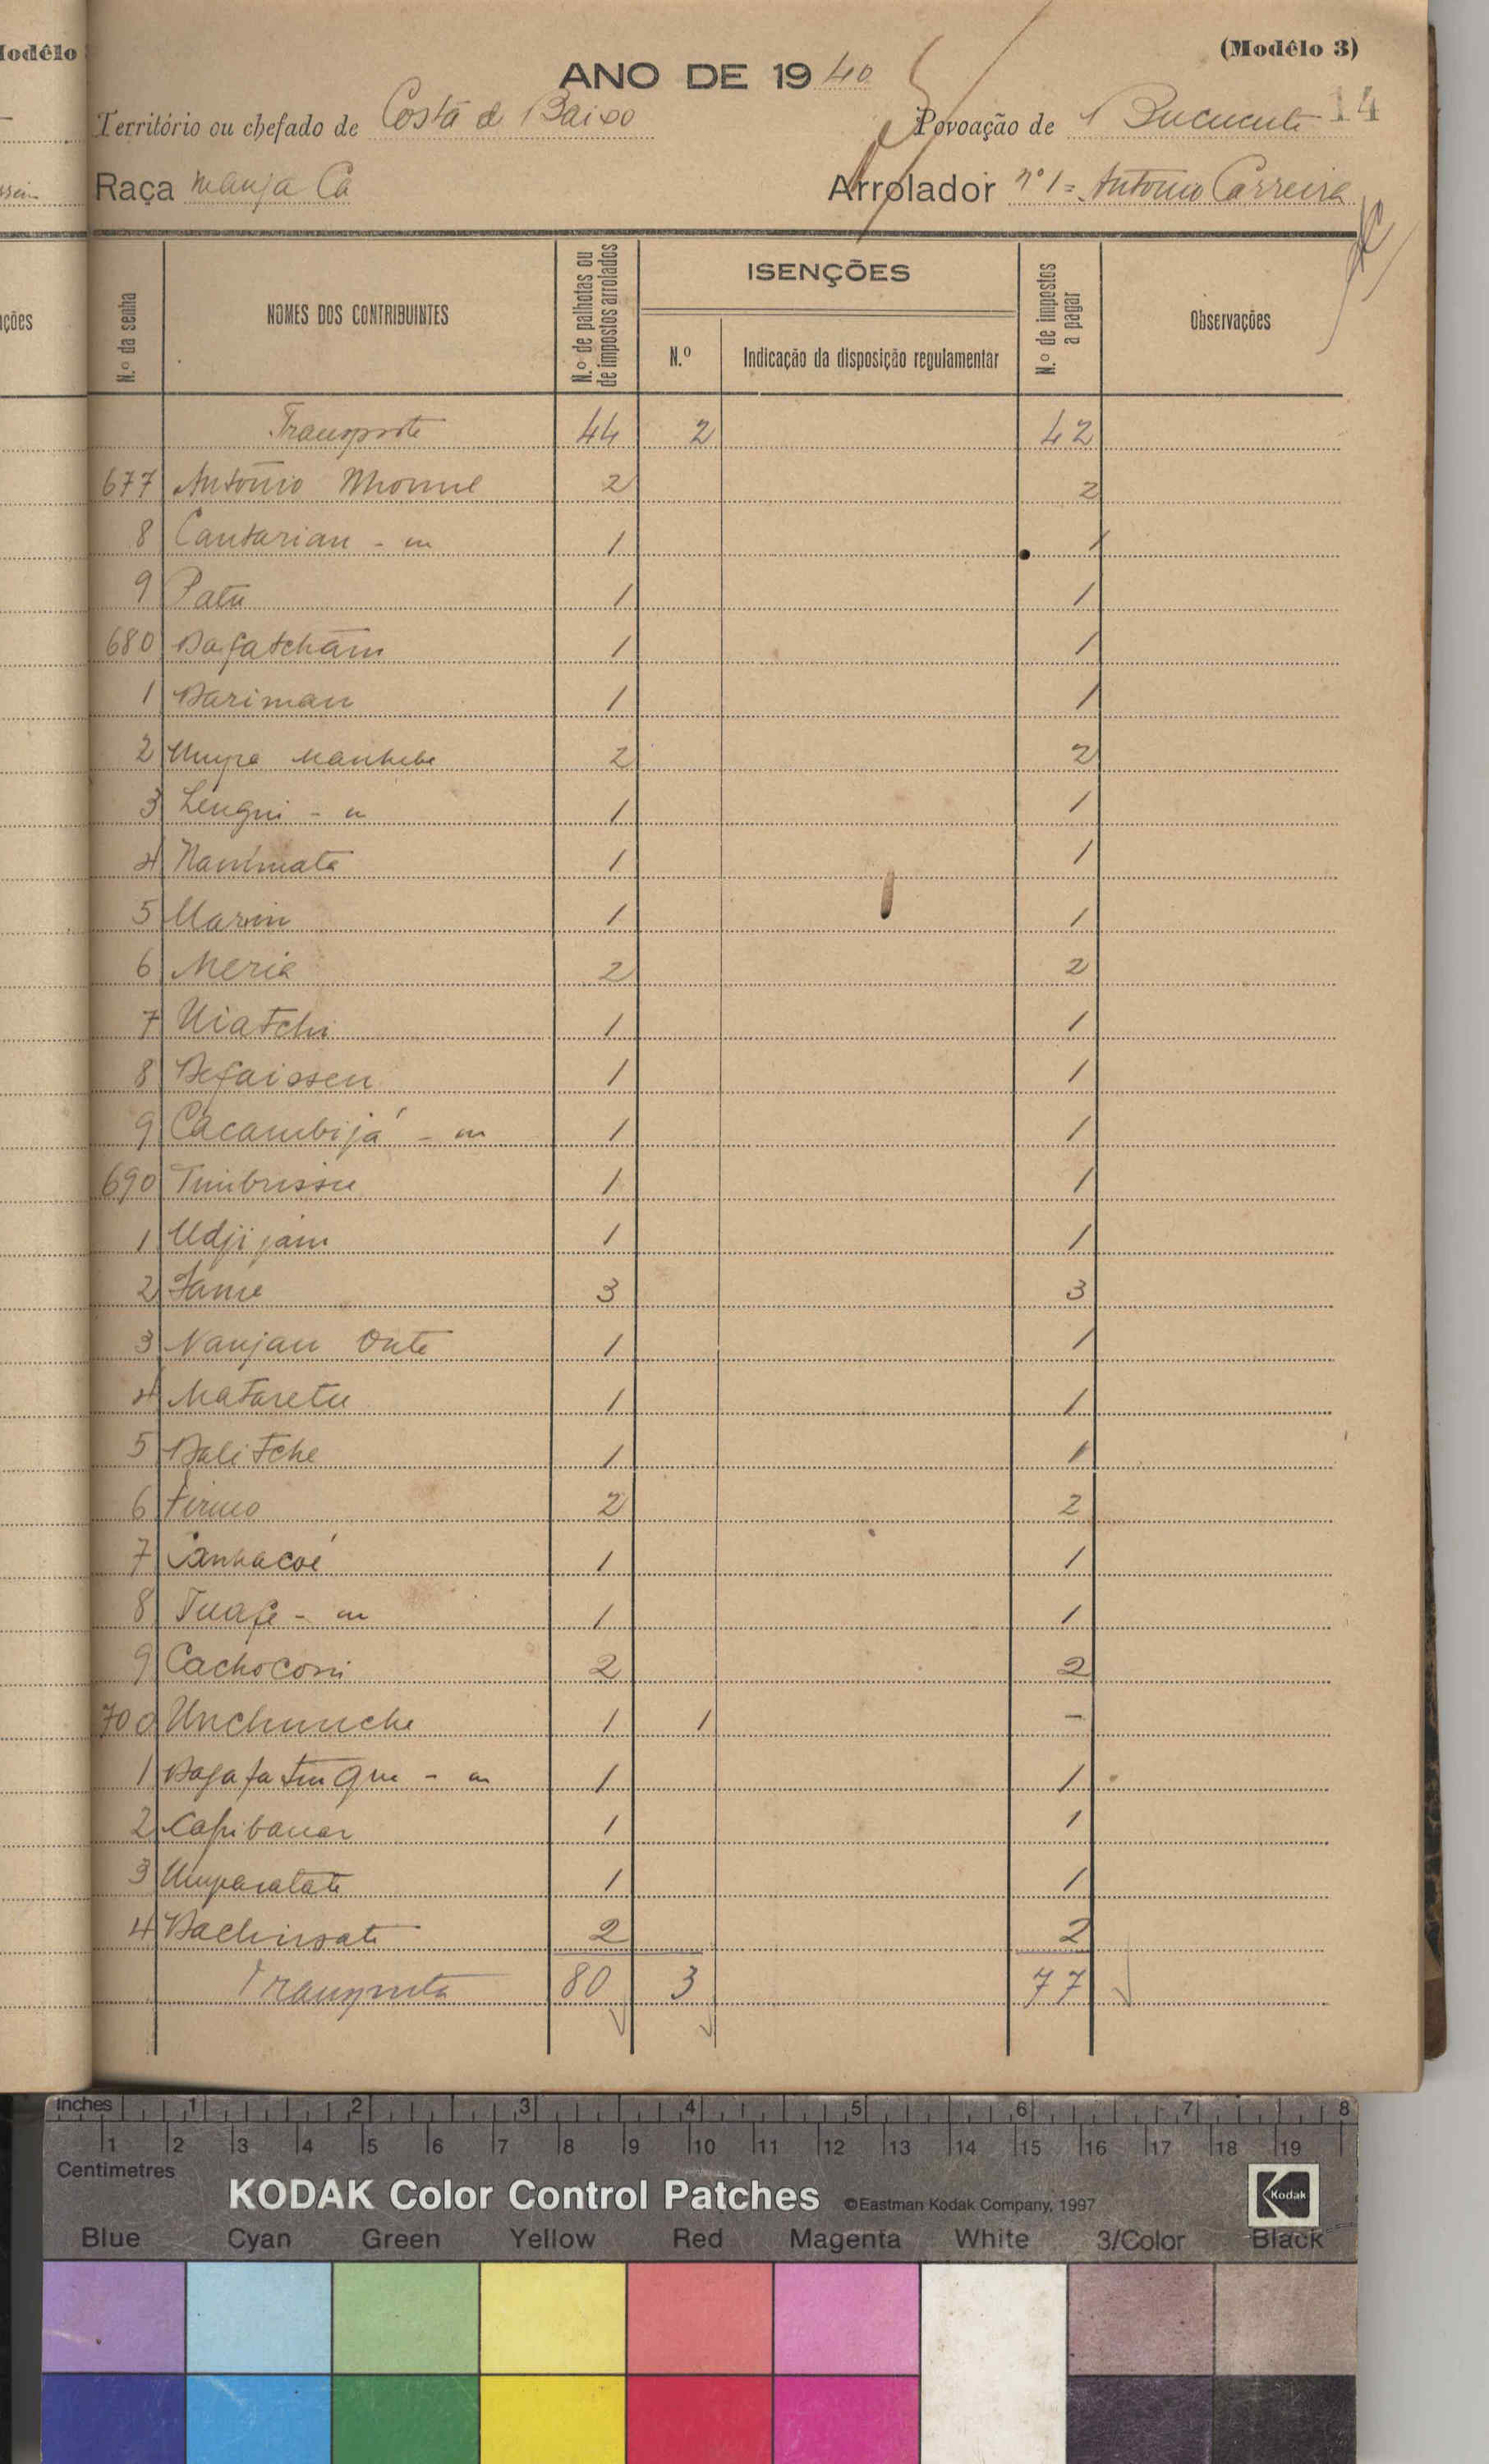 odêlo
(Modêlo 3)
ANO DE 1940
Território ou chefado de Costa de Baixo
Povoação de Bucucute 14
Raça Manja Ca
Arrolador nº 1 = António Carreira
ções
N.º da senha
NOMES DOS CONTRIBUINTES
N.º de palhotas ou de impostos arrolados
ISENÇÕES
N.º
Indicação da disposição regulamentar
N.º de impostos a pagar
Observações
Transporte 44 2 42
677 António 2 2
8 Cantarian - m 1 1
9 Patu 1 1
680 Bafatcham 1 1
1 Bariman 1 1
2 2 2
3 Lengui - m 1 1
4 Nanimata 1 1
5 Marin 1 1
6 Meria 2 2
7 Uiatchi 1 1
8 Befaissen 1 1
9 Cacambijá - m 1 1
690 Timbrissu 1 1
1 Udjijam 1 1
2 Jame 3 3
3 Nanjan Onte 1 1
4 Mataretu 1 1
5 Balitche 1 1
6 Firmo 2 2
7 Canhacoé 1 1
8 Tuafe - m 1 1
9 Cachoconi 2 2
700 Unchunche 1 1 -
1 - m 1 1
2 Capibanar 1 1
3 Umparatate 1 1
4 Bachirsate 2 2
Transporta 80 3 77
inches 1 2 3 4 5 6 7 8
1 2 3 4 5 6 7 8 9 10 11 12 13 14 15 16 17 18 19
Centimetres
KODAK Color Control Patches ©Eastman Kodak Company, 1997 Kodak
Blue Cyan Green Yellow Red Magenta White 3/Color Black